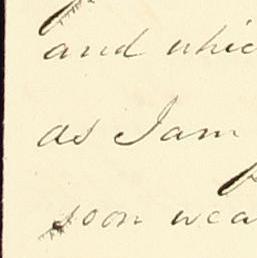 and whic
as I am
soon wea